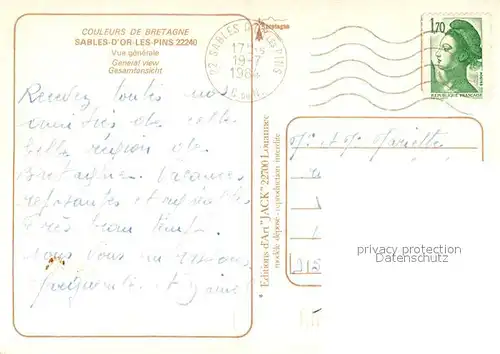 COULEURS DE BRETAGNE
SABLES-D'OR-LES-PINS 22240
Vue générale
General view
Gesamtansicht
Bretagne
22 SABLES D'OR LES PINS
17 H 15
19 - 7
1984
1,70
REPUBLIQUE FRANÇAISE
POSTES
toutes nos
amitiés de cette
belle région de
Bretagne. Vacances
reposantes et agréables
Très beau temps
nous vous
Editions d'Art "JACK" 22700 Louannec
modèle déposé - reproduction interdite
Mr et Me Mariette
privacy protection
Datenschutz